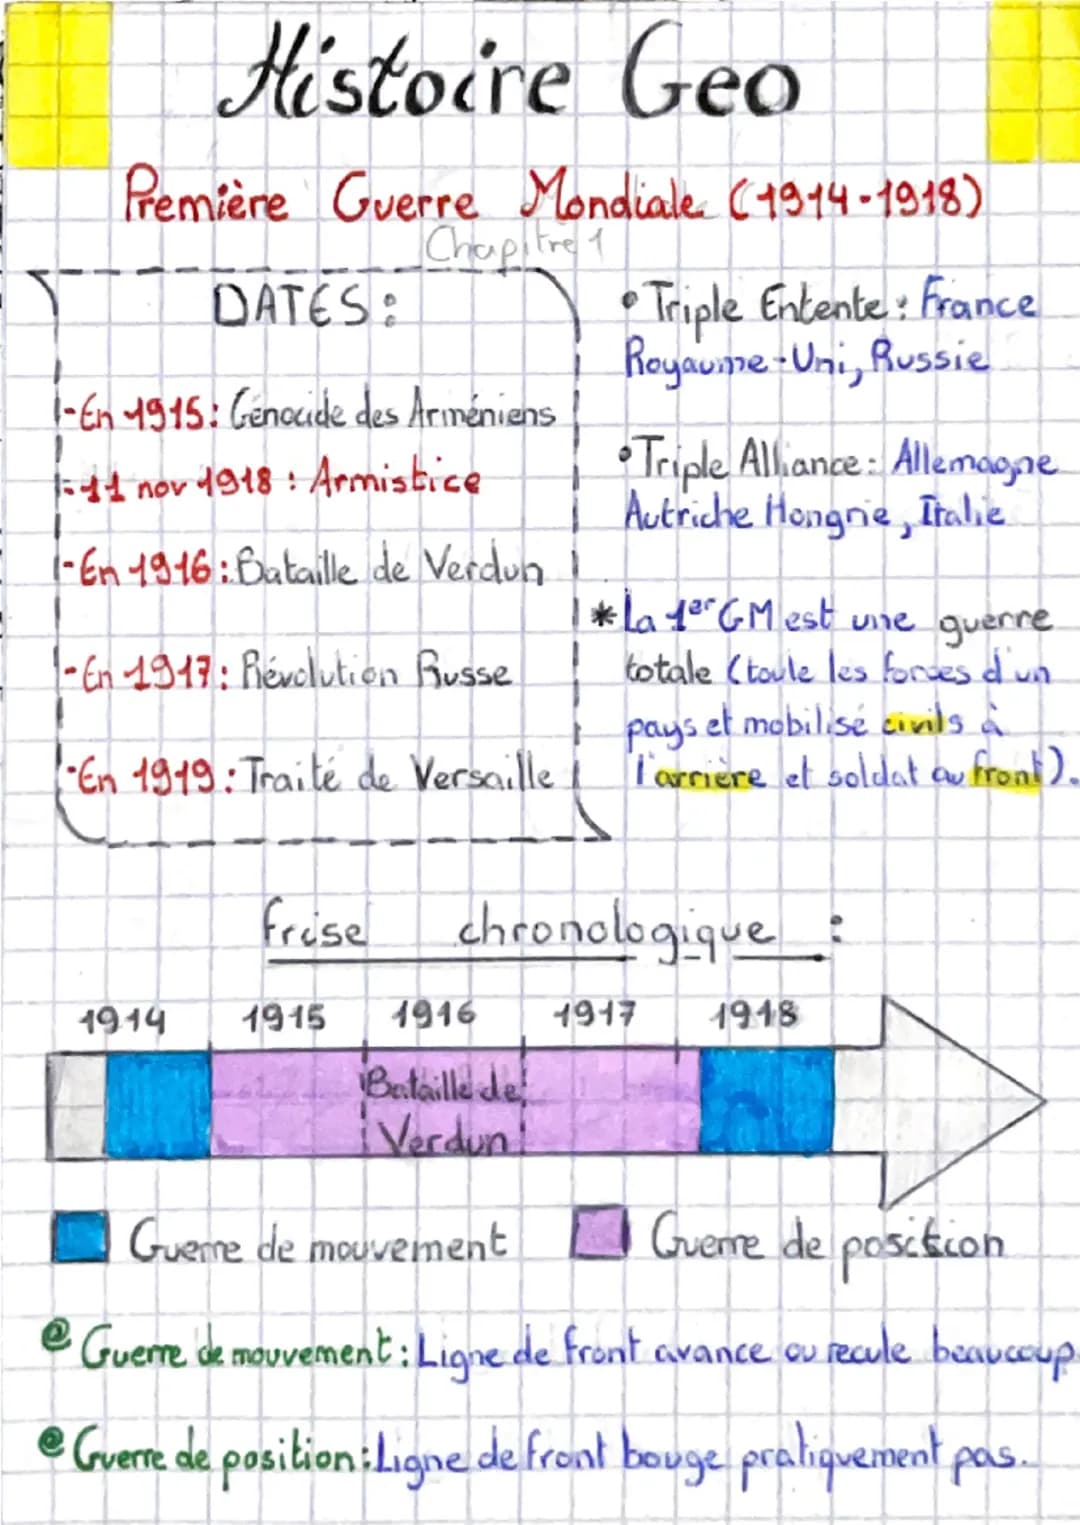 Histoire Geo
Première Guerre Mondiale (1914-1918)
Chapitre 1
DATES :
-En 1915 : Génocide des Arméniens
-11 nov 1918 : Armistice
-En 1916 : Bataille de Verdun
-En 1917 : Révolution Russe
-En 1919 : Traité de Versaille
• Triple Entente : France
Royaume-Uni, Russie
• Triple Alliance : Allemagne
Autriche Hongrie, Italie
* La 1er GM est une guerre
totale (toute les forces d'un
pays et mobilisé civils à
l'arrière et soldat au front).
frise chronologique :
1914 1915 1916 1917 1918
Bataille de
Verdun
Guerre de mouvement Guerre de position
@ Guerre de mouvement : Ligne de front avance ou recule beaucoup
@ Guerre de position : Ligne de front bouge pratiquement pas.